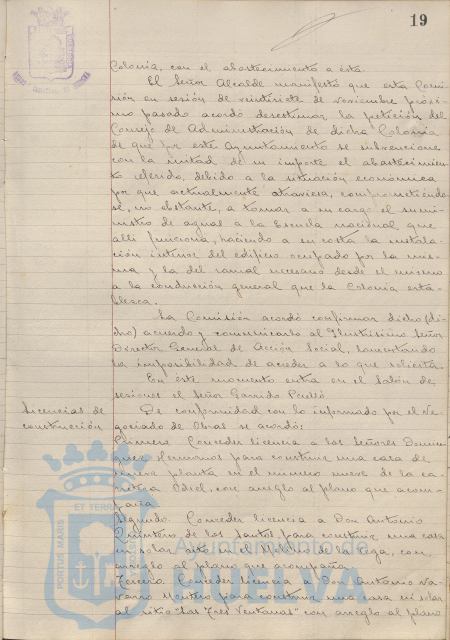 19
Colonia, con el abastecimiento a ésta.
El Señor Alcalde manifestó que esta Comi-
sión en sesión de veintisiete de noviembre próxi-
mo pasado acordó desestimar la petición del
Consejo de Administración de dicha Colonia
de que por este Ayuntamiento se subvencione
con la mitad de su importe el abastecimien-
to referido, debido a la situación económica
por que actualmente atraviesa, comprometiéndo-
se, no obstante, a tomar a su cargo el sumi-
nistro de agua a la Escuela nacional que
allí funciona, haciendo a su costa la instala-
ción interior del edificio ocupado por la mis-
ma y la del ramal necesario desde el mismo
a la conducción general que la Colonia esta-
blezca.
La Comisión acordó confirmar dicho (di-
cho) acuerdo y comunicarlo al Ilustrísimo Señor
Director General de Acción Social, lamentando
la imposibilidad de acceder a lo que solicita.
En este momento entra en el Salón de
sesiones el Señor Garrido Perelló
Licencias de
construcción
De conformidad con lo informado por el Ne-
gociado de Obras se acordó:
Primero. Conceder licencia a los Señores Domin-
guez Hermanos para construir una casa de
nueva planta en el número nueve de la ca-
rretera Odiel, con arreglo al plano que acom-
paña
Segundo. Conceder licencia a Don Antonio
Quintero de los Santos para construir una casa
en solar sito en el Molino de la Vega, con
arreglo al plano que acompaña
Tercero. Conceder licencia a Don Antonio Na-
varro Montero para construir una casa en solar
al sitio "Las Tres Ventanas" con arreglo al plano
PORTUS MARIS ET TERRAE
Ayuntamiento de
HUELVA